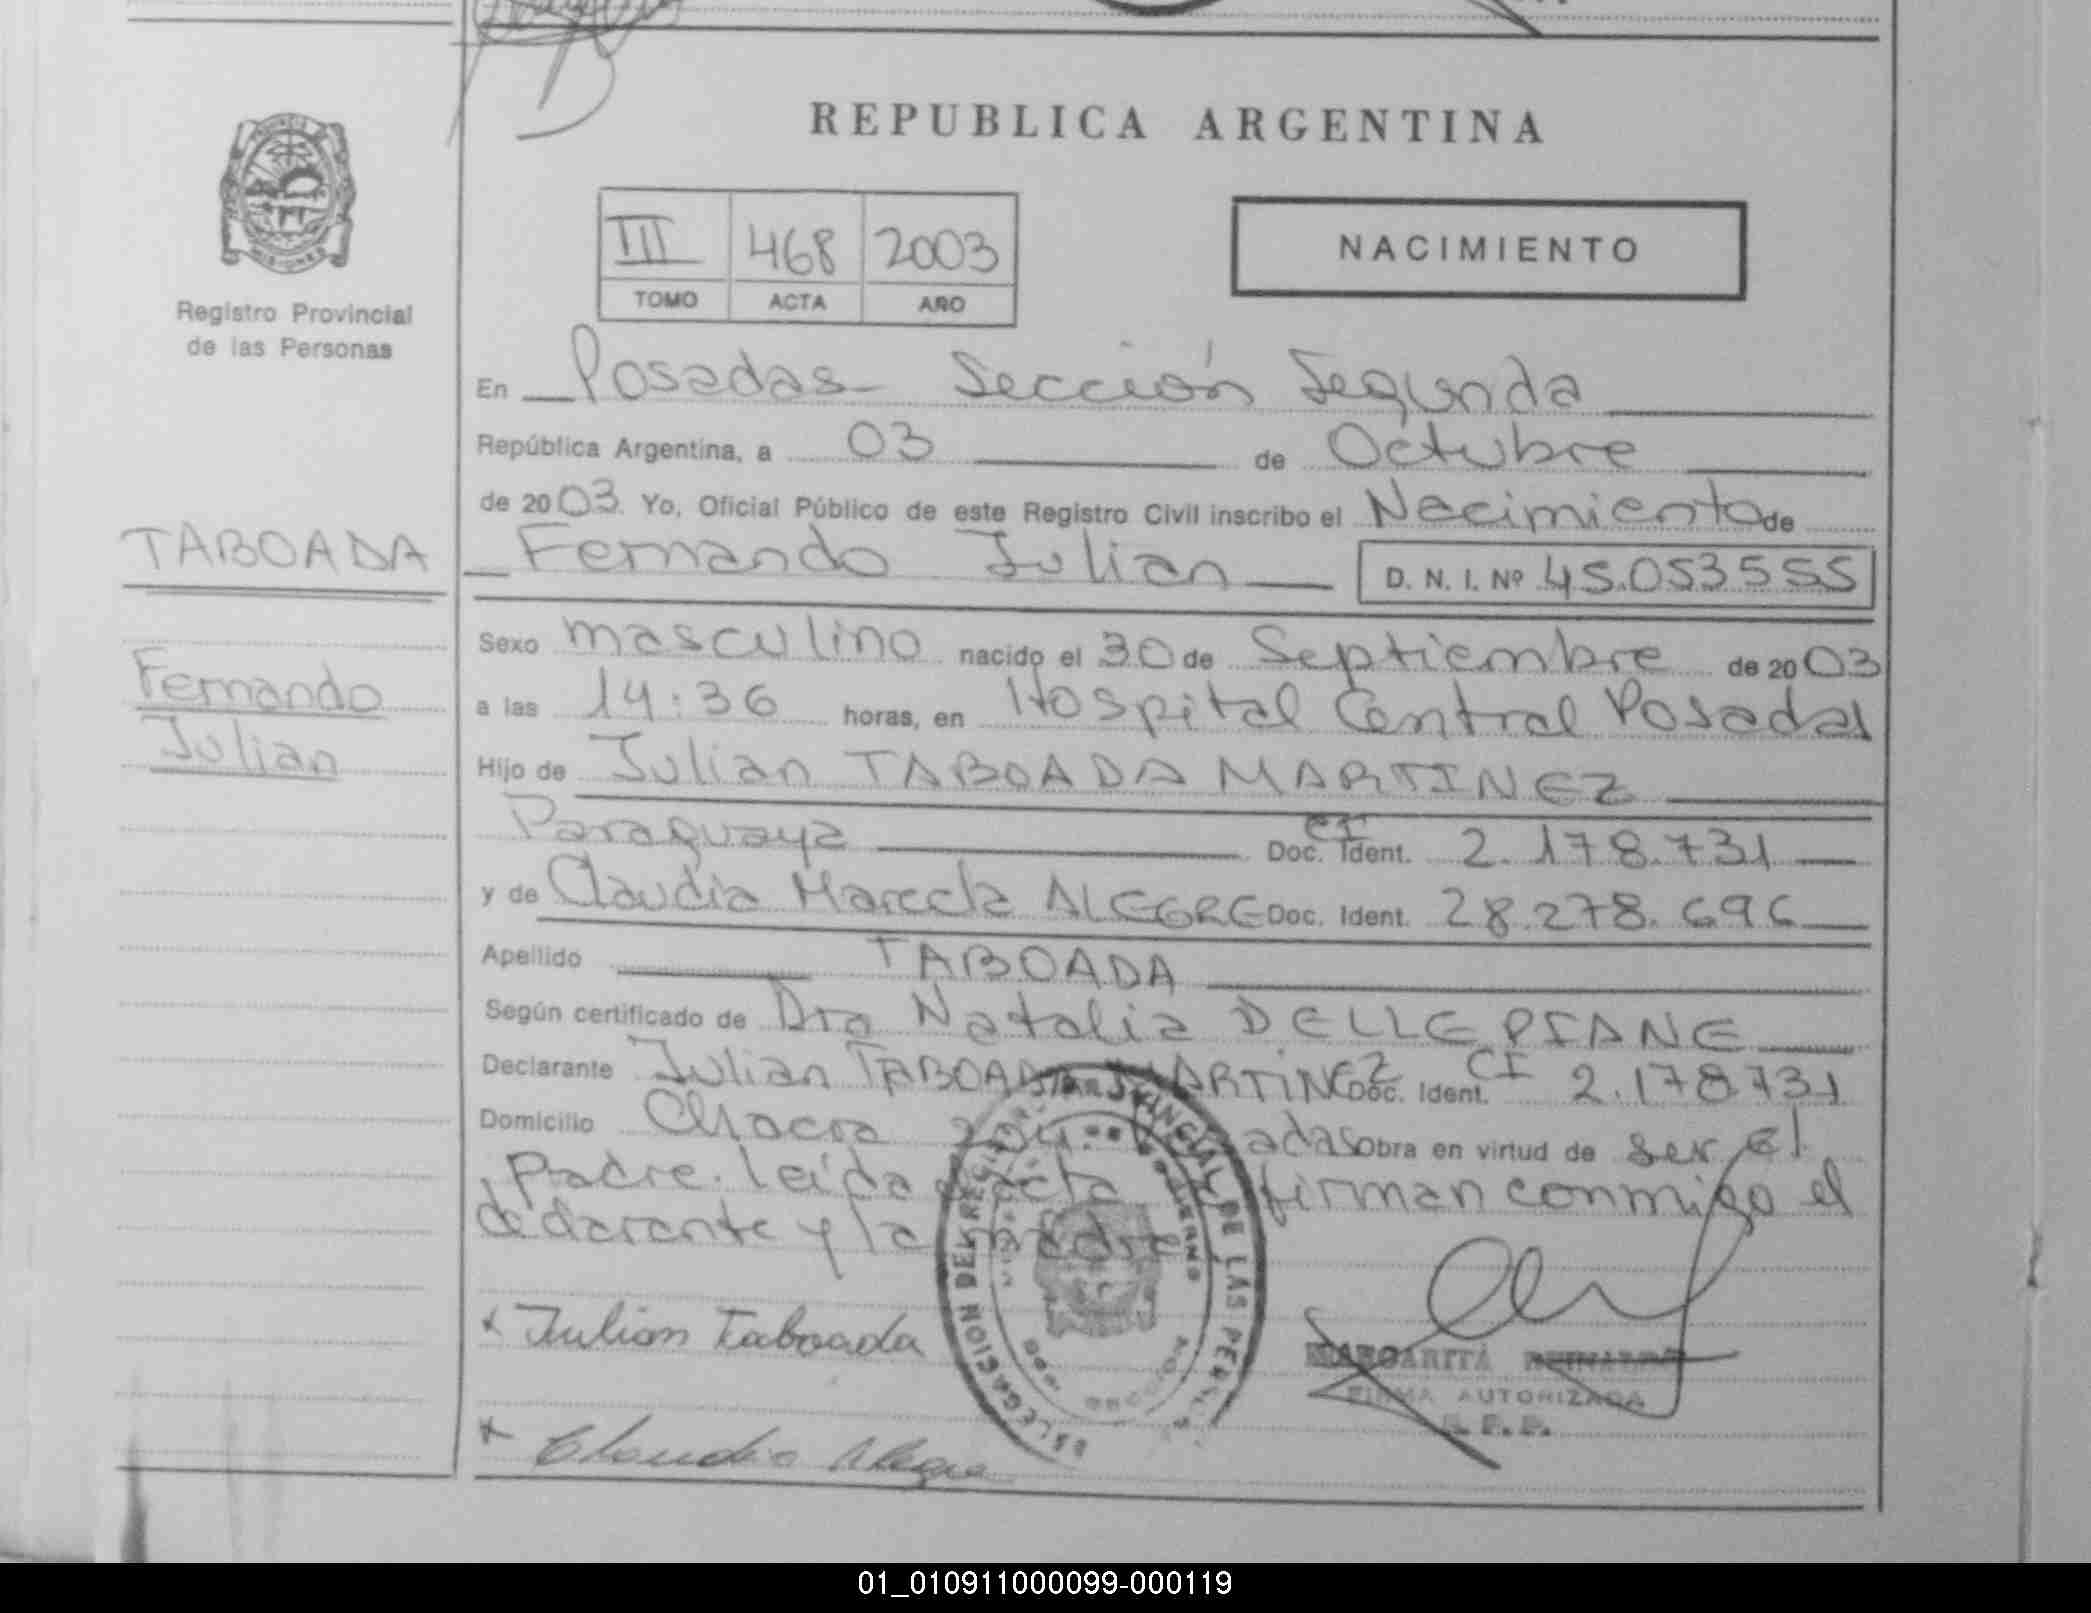 REPUBLICA ARGENTINA
III 468 2003
TOMO ACTA AÑO
NACIMIENTO
Registro Provincial
de las Personas
En Posadas - Sección Segunda
República Argentina, a 03 de Octubre
de 2003. Yo, Oficial Público de este Registro Civil inscribo el Nacimiento de
Fernando Julian D. N. I. Nº 45.053555
TABOADA
Fernando
Julian
Sexo masculino nacido el 30 de Septiembre de 2003
a las 14:36 horas, en Hospital Central Posadas
Hijo de Julian TABOADA MARTINEZ
Paraguaya CI Doc. Ident. 2.178.731
y de Claudia Marcela ALEGRE Doc. Ident. 28.278.696
Apellido TABOADA
Según certificado de Dra Natalia DELLE PIANE
Declarante Julian TABOADA MARTINEZ Doc. Ident. CI 2.178731
Domicilio Chacra Obra en virtud de ser el
padre. leída acta firman conmigo el
declarante y la madre
x Julian Taboada
x Claudia Alegre
DELEGACION DEL REGISTRO PROVINCIAL DE LAS PERSONAS
MARGARITA
FIRMA AUTORIZADA
R. P. P.
01_010911000099-000119